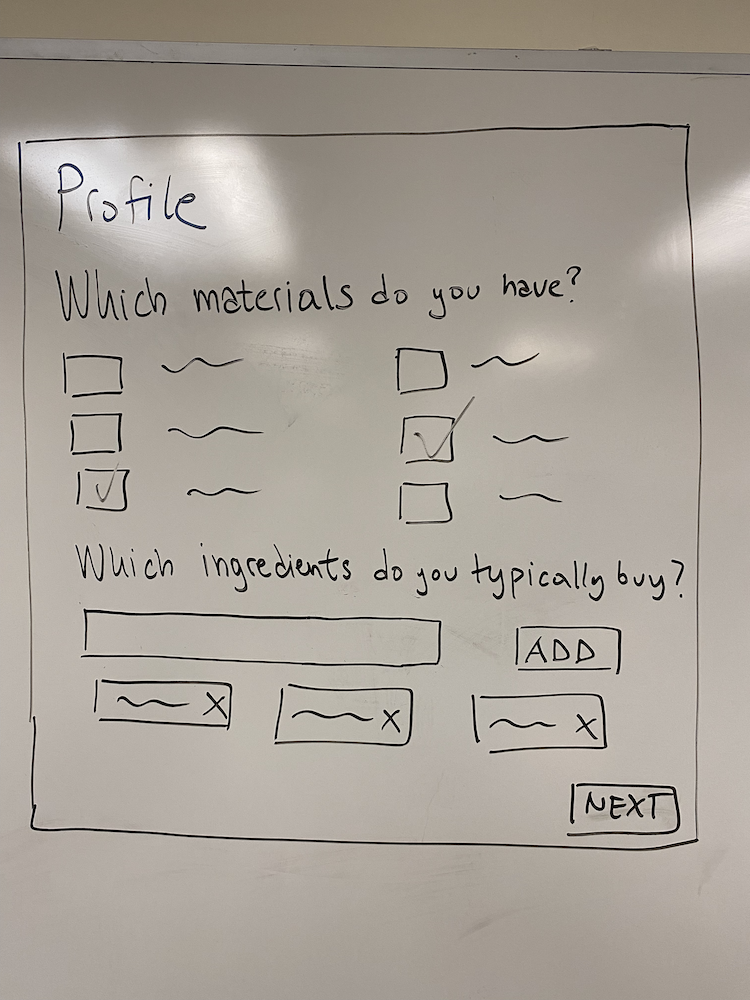 Profile
Which materials do you have?
Which ingredients do you typically buy?
ADD
X X X
NEXT